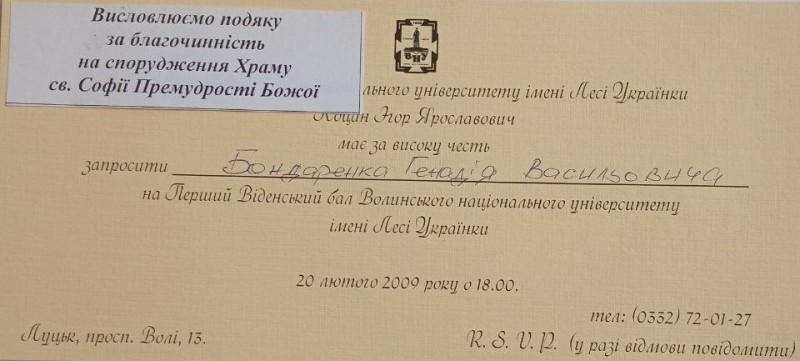 Висловлюємо подяку
за благочинність
на спорудження Храму
св. Софії Премудрості Божої
ВНУ
льного університету імені Лесі Українки
Коцан Ігор Ярославович
має за високу честь
запросити Бондаренка Генадія Васильовича
на Перший Віденський бал Волинського національного університету
імені Лесі Українки
20 лютого 2009 року о 18.00.
тел: (0332) 72-01-27
Луцьк, просп. Волі, 13.
R. S. V. P. (у разі відмови повідомити)